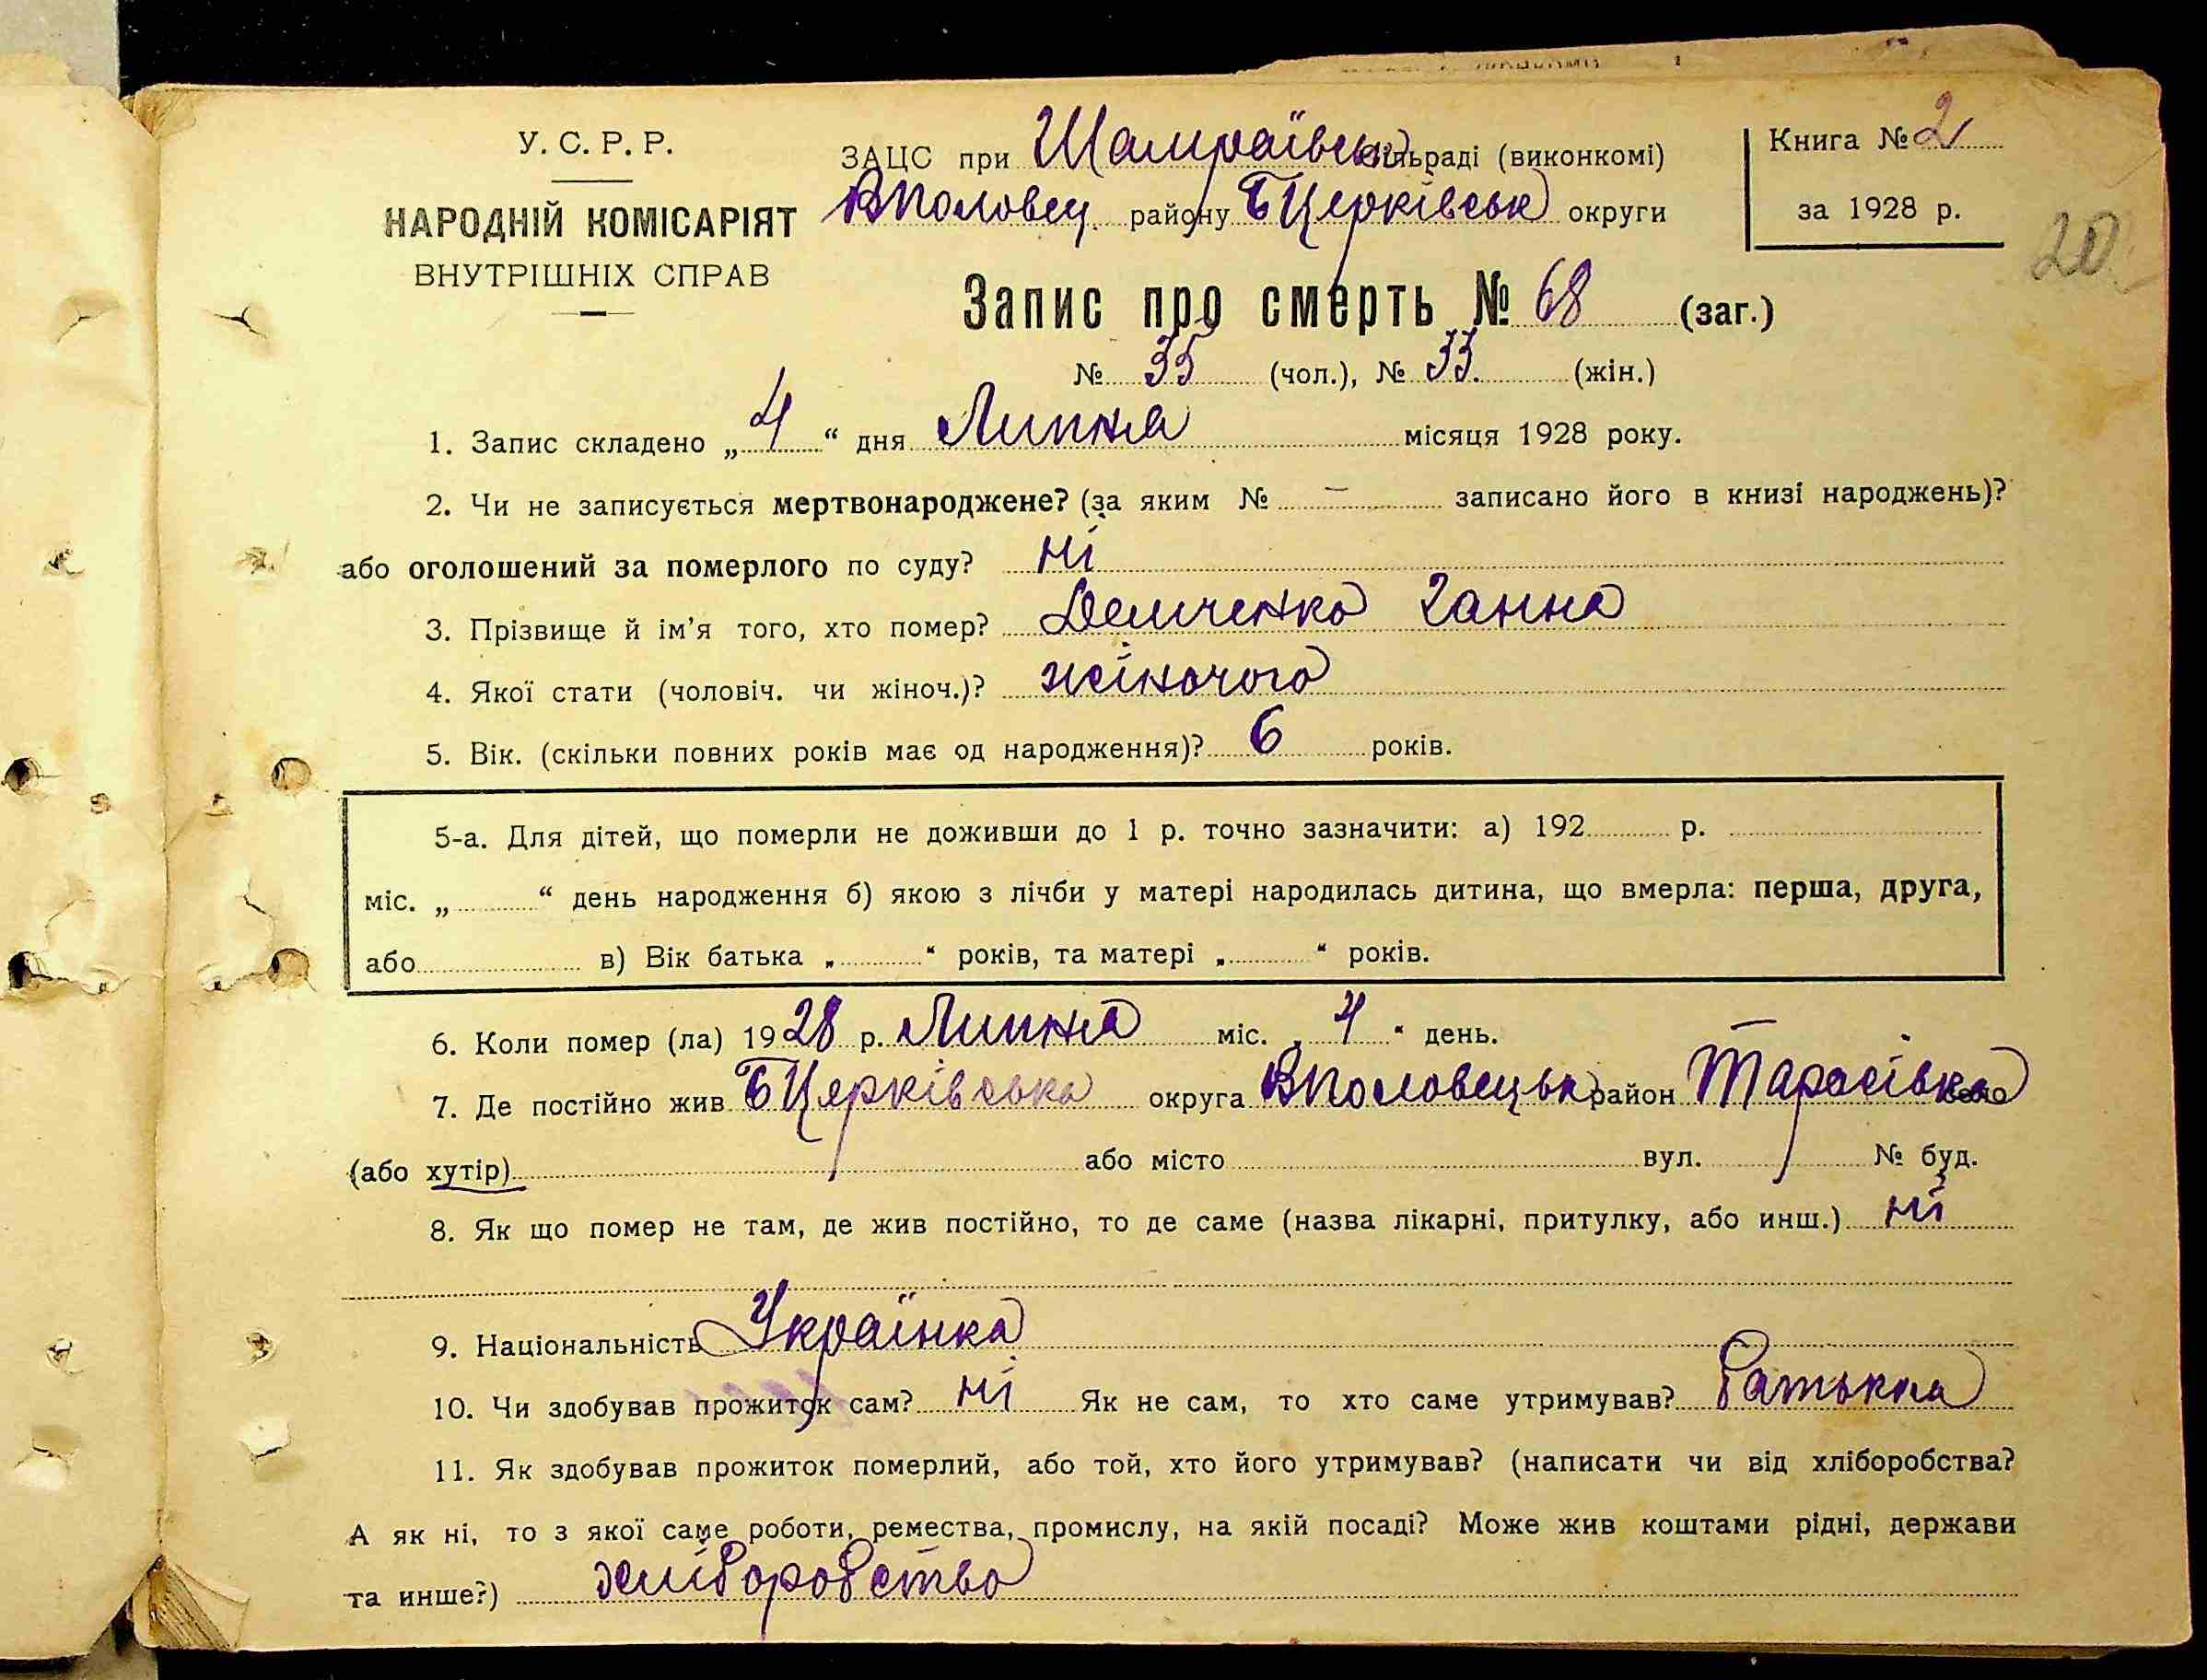 У. С. Р. Р.
НАРОДНІЙ КОМІСАРІЯТ
ВНУТРІШНІХ СПРАВ
ЗАЦС при Шамраївськ сільраді (виконкомі)
ВПоловец. району БЦерківськ округи
Книга № 2
за 1928 р.
20
Запис про смерть № 68 (заг.)
№ 35 (чол.), № 33. (жін.)
1. Запис складено „ 4 “ дня Липня місяця 1928 року.
2. Чи не записується мертвонароджене? (за яким № – записано його в книзі народжень)?
або оголошений за померлого по суду? ні
3. Прізвище й ім'я того, хто помер? Демченко Ганна
4. Якої стати (чоловіч. чи жіноч.)? жіночого
5. Вік. (скільки повних років має од народження)? 6 років.
5-а. Для дітей, що померли не доживши до 1 р. точно зазначити: а) 192 р.
міс. „ “ день народження б) якою з лічби у матері народилась дитина, що вмерла: перша, друга,
або в) Вік батька „ “ років, та матері „ “ років.
6. Коли помер (ла) 1928 р. Липня міс. „ 4 “ день.
7. Де постійно жив БЦерківська округа ВПоловецьк район Тарасівка село
(або хутір) або місто вул. № буд.
8. Як що помер не там, де жив постійно, то де саме (назва лікарні, притулку, або инш.) ні
9. Національність Українка
10. Чи здобував прожиток сам? ні Як не сам, то хто саме утримував? батьки
11. Як здобував прожиток померлий, або той, хто його утримував? (написати чи від хліборобства?
А як ні, то з якої саме роботи, ремества, промислу, на якій посаді? Може жив коштами рідні, держави
та инше?) хліборобство